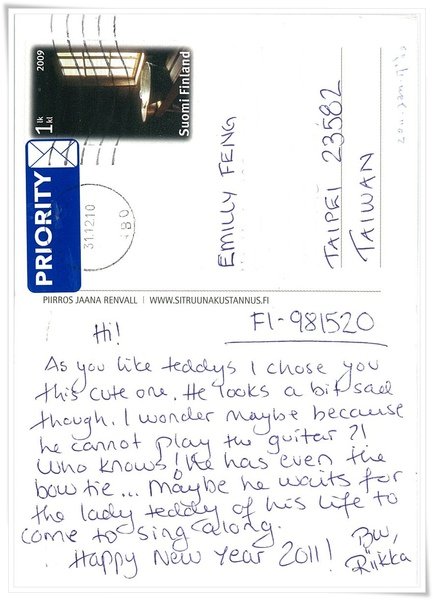 2009
1 lk
kl
Suomi Finland
PRIORITY
31.12.10
EMILLY FENG
TAIPEI 23582
TAIWAN
PIIRROS JAANA RENVALL | WWW.SITRUUNAKUSTANNUS.FI
FI-981520
Hi!
As you like teddys I chose you
this cute one. He looks a bit sad
though. I wonder maybe because
he cannot play the guitar ?!
Who knows! He has even the
bow tie... Maybe he waits for
the lady teddy of his life to
come to sing along.
Happy New Year 2011!
Bw,
Riikka